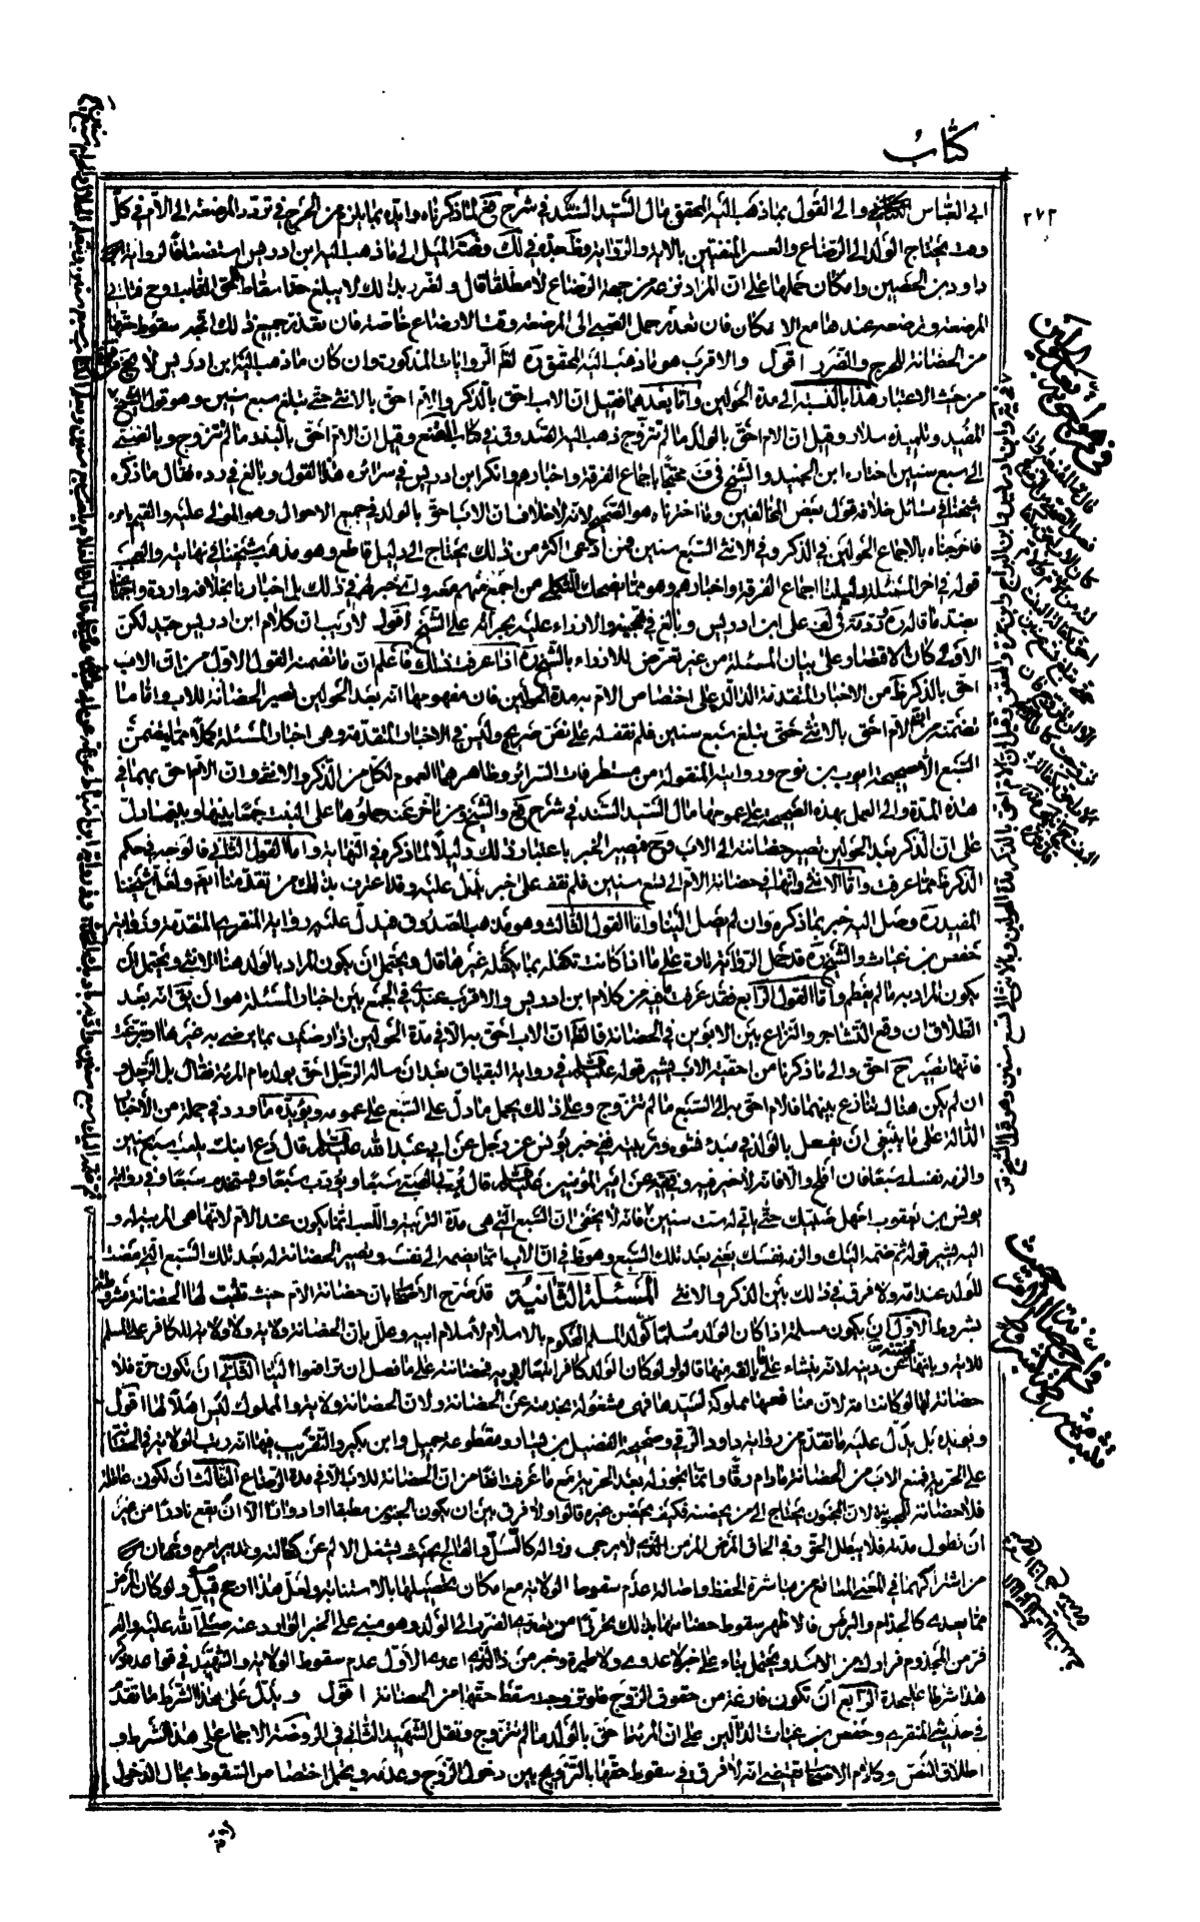 كتاب
٢٧٢
ابي العباس والى القول بما ذهب اليه المحقق مال السيد السند في شرح فع لما ذكرناه وايده بما يلزم من الحرج في تردد المرضعة الى الام في كل
وقت يحتاج الولد الى الرضاع والعسر المنفيين بالاية والرواية وظ جده في لك وضة الميل الى ما ذهب اليه ابن ادريس استضعافا لرواية
داود بن الحصين وامكان حملها على ان المراد نوعه من جهة الرضاع لا مطلقا قال ولضرر بذلك لا يبلغ حد اسقاط الحق الثابت وح فتاتي
المرضعة وترضعه عندها مع الامكان فان تعذر حمل الصبي الى المرضعة وقت الارضاع خاصة فان تعذر جميع ذلك اتجه سقوط حقها
من الحضانة للحرج والضرر اقول والاقرب هو ما ذهب اليه المحقق ره لظ الروايات المذكورة وان كان ما ذهب اليه ابن ادريس لا يخ
من حيث الاعتبار هذا بالنسبة الى مدة الحولين واما بعدهما فقيل ان الاب احق بالذكر والام احق بالانثى حتى تبلغ سبع سنين وهو قول الشيخ
المفيد وتلميذه سلار وقيل ان الام احق بالولد ما لم تتزوج ذهب اليه الصدوق في كتاب المقنع وقيل ان الام احق بالبنت ما لم تتزوج وبالصبي
الى سبع سنين اختاره ابن الجنيد والشيخ في ف محتجا باجماع الفرقة واخبارهم وانكر ابن ادريس في سرائره هذا القول وبالغ في رده فقال ما ذكره
شيخنا في مسائل خلافه قول بعض المخالفين وما اخترناه هو الصحيح لانه لا خلاف ان الاب احق بالولد في جميع الاحوال وهو الموالى عليه والقيم بامره
فاخرجناه بالاجماع الحولين في الذكر وفي الانثى السبع سنين فمن ادعى اكثر من ذلك يحتاج الى دليل قاطع وهو مذهب شيخنا في نهايته والعجب
قوله في اخر المسئلة دليلنا اجماع الفرقة واخبارهم وهو مما يضحك الثكلى من اجمع منهم معه واي خبر لهم في ذلك بل اخبارنا بخلافه واردة واجماعنا
بضد ما قاله ره ورده في لف على ابن ادريس وبالغ في تهجينه والازراء عليه بجراته على الشيخ اقول لا ريب ان كلام ابن ادريس جيد لكن
الاولى كان الاقتصار على بيان المسئلة من غير تعرض للازراء بالشيخ ره اذا عرفت ذلك فاعلم ان ما تضمنه القول الاول من ان الاب
احق بالذكر ظ من الاخبار المتقدمة الدالة على اختصاص الام به مدة الحولين فان مفهومها انه بعد الحولين تصير الحضانة للاب واما ما
تضمنه من ان الام احق بالانثى حتى تبلغ سبع سنين فلم نقف له على نص صريح وليس في الاخبار المتقدمة وهي اخبار المسئلة كملا مما يتضمن
السبع الا صحيحة ايوب بن نوح وروايته المنقولة من مستطرفات السرائر وظاهرهما العموم لكل من الذكر والانثى وان الام احق بهما في
هذه المدة والى العمل بهذه الصحيحة على عمومها مال السيد السند في شرح فع والشيخ ومن تاخر عنه حملوها على البنت جمعا بينها وبين ما دل
على ان الذكر بعد الحولين تصير حضانته الى الاب وح فيصير الخبر باعتبار ذلك دليلا لما ذكره في النهاية واما القول الثاني فالوجه في حكم
الذكر ظ مما عرفت واما الانثى وانها في حضانة الام الى تسع سنين فلم نقف على خبر يدل عليه وقد اعترف بذلك من تقدمنا ايضا ولعل شيخنا
المفيد ره وصل اليه خبر بما ذكره وان لم يصل الينا واما القول الثالث وهو مذهب الصدوق فيدل عليه رواية المنقري المتقدمة ورواية
حفص بن غياث والشيخ ره قد حمل الرواية زيادة على ما اذا كانت تكفله بما يكفله غيرها قال ويحتمل ان يكون المراد بالولد هنا الانثى ويحتمل ان
يكون المراد به ما لم يفطم واما القول الرابع فقد عرفت ما فيه من كلام ابن ادريس والاقرب عندي في الجمع بين اخبار المسئلة هو ان يق انه بعد
الطلاق ان وقع التشاجر والنزاع بين الابوين في الحضانة فالظ ان الاب احق به الا في مدة الحولين اذا رضيت بما يرضى به غيرها او تبرعت
فانها تصير ح احق والى ما ذكرنا من احقية الاب يشير قوله عليه السلام في رواية البقباق بعد ان ساله الرجل احق بولده ام المرئة فقال بل الرجل و
ان لم يكن هناك تنازع بينهما فالام احق به الى السبع ما لم تتزوج وعلى ذلك يحمل ما دل على السبع على عمومه ويؤيده ما ورد في جملة من الاخبار
الدالة على ما ينبغي ان يفعل بالولد في مبدء نشوه وتربيته ففي خبر يونس عن رجل عن ابي عبد الله عليه السلام قال دع ابنك يلعب سبع سنين
والزمه نفسك سبعا فان افلح والا فانه لا خير فيه وفي عن امير المؤمنين عليه السلام قال يربى الصبي سبعا ويؤدب سبعا ويستخدم سبعا وفي رواية
يونس بن يعقوب امهل صبيك حتى ياتي له ست سنين فانه لا يخفى ان السبع التي هي مدة التربية واللعب انما يكون عند الام لانها هي المربية له و
اليه يشير قوله ثم ضمه اليك والزمه نفسك يعني بعد تلك السبع وهو ظ في ان الاب انما يضمه الى نفسه وتصير الحضانة له بعد تلك السبع التي مضت
للولد عند امه ولا فرق في ذلك بين الذكر والانثى المسئلة الثانية قد صرح الاصحاب بان حضانة الام حيث تثبت لها الحضانة مشروطة
بشروط الاول ان يكون مسلمة اذا كان الولد مسلما كولد المسلم المحكوم بالاسلام لاسلام ابيه وعلل بان الحضانة ولاية ولا ولاية للكافر على المسلم
للاية وبانها تفتنه عن دينه لانه ينشاء على ما يالفه منها قالوا ولو كان الولد كافرا تبعا لابويه فحضانته على ما فصل ان ترافعوا الينا الثاني ان تكون حرة فلا
حضانة لها لو كانت امة لان منافعها مملوكة لسيدها فهي مشغولة بخدمته عن الحضانة ولان الحضانة ولاية والمملوك ليس اهلا لها اقول
وبهذه بل يدل عليه ما تقدم من رواية داود الرقي وصحيحة الفضيل بن يسار ومقطوعة جميل وابن بكير والتقريب فيها انه رتب الولاية في الحضانة
على الحرية فمنع الاب من الحضانة ما دام رقا وانما تجوز له بعد الحرية مع ما عرفت انفا من ان الحضانة للاب الا في مدة الرضاع الثالث ان تكون عاقلة
فلا حضانة للمجنونة لان المجنون يحتاج الى من يحضنه فكيف يحضن غيره قالوا ولا فرق بين ان يكون الجنون مطبقا او ادوارا الا ان يقع نادرا من غير
ان تطول مدته فلا يبطل الحق وفي الحاق المرض المزمن الذي لا يرجى زواله كالسل والفالج بحيث يشغل الالم عن كفالته وتدبير امره وجهان
من اشتراكهما في المعنى المانع من مباشرة الحفظ واصالة عدم سقوط الولاية مع امكان تحصيلها بالاستنابة ولعل هذا ارجح قيل ولو كان المرض
مما يعدي كالجذام والبرص فالاظهر سقوط حضانتها بذلك تحرزا من تعدي الضرر الى الولد وهو مبني على الخبر الوارد عنه صلى الله عليه واله
فر من المجذوم فرارك من الاسد ويحتمل بناء على خبر لا عدوى ولا طيرة وخبر من ذا الذي اعدى الاول عدم سقوط الولاية والشهيد في قواعده ذكر
هذا شرطا على حدة الرابع ان تكون فارغة من حقوق الزوج فلو تزوجت سقط حقها من الحضانة اقول ويدل على هذا الشرط ما تقدم
في حديثي المنقري وحفص بن غياث الدالين على ان المرئة احق بالولد ما لم تتزوج ونقل الشهيد الثاني في الروضة الاجماع على هذا الشرط و
اطلاق النص وكلام الاصحاب يقتضي انه لا فرق في سقوط حقها بالتزويج بين دخول الزوج وعدمه ويحتمل اختصاص السقوط بحال الدخول